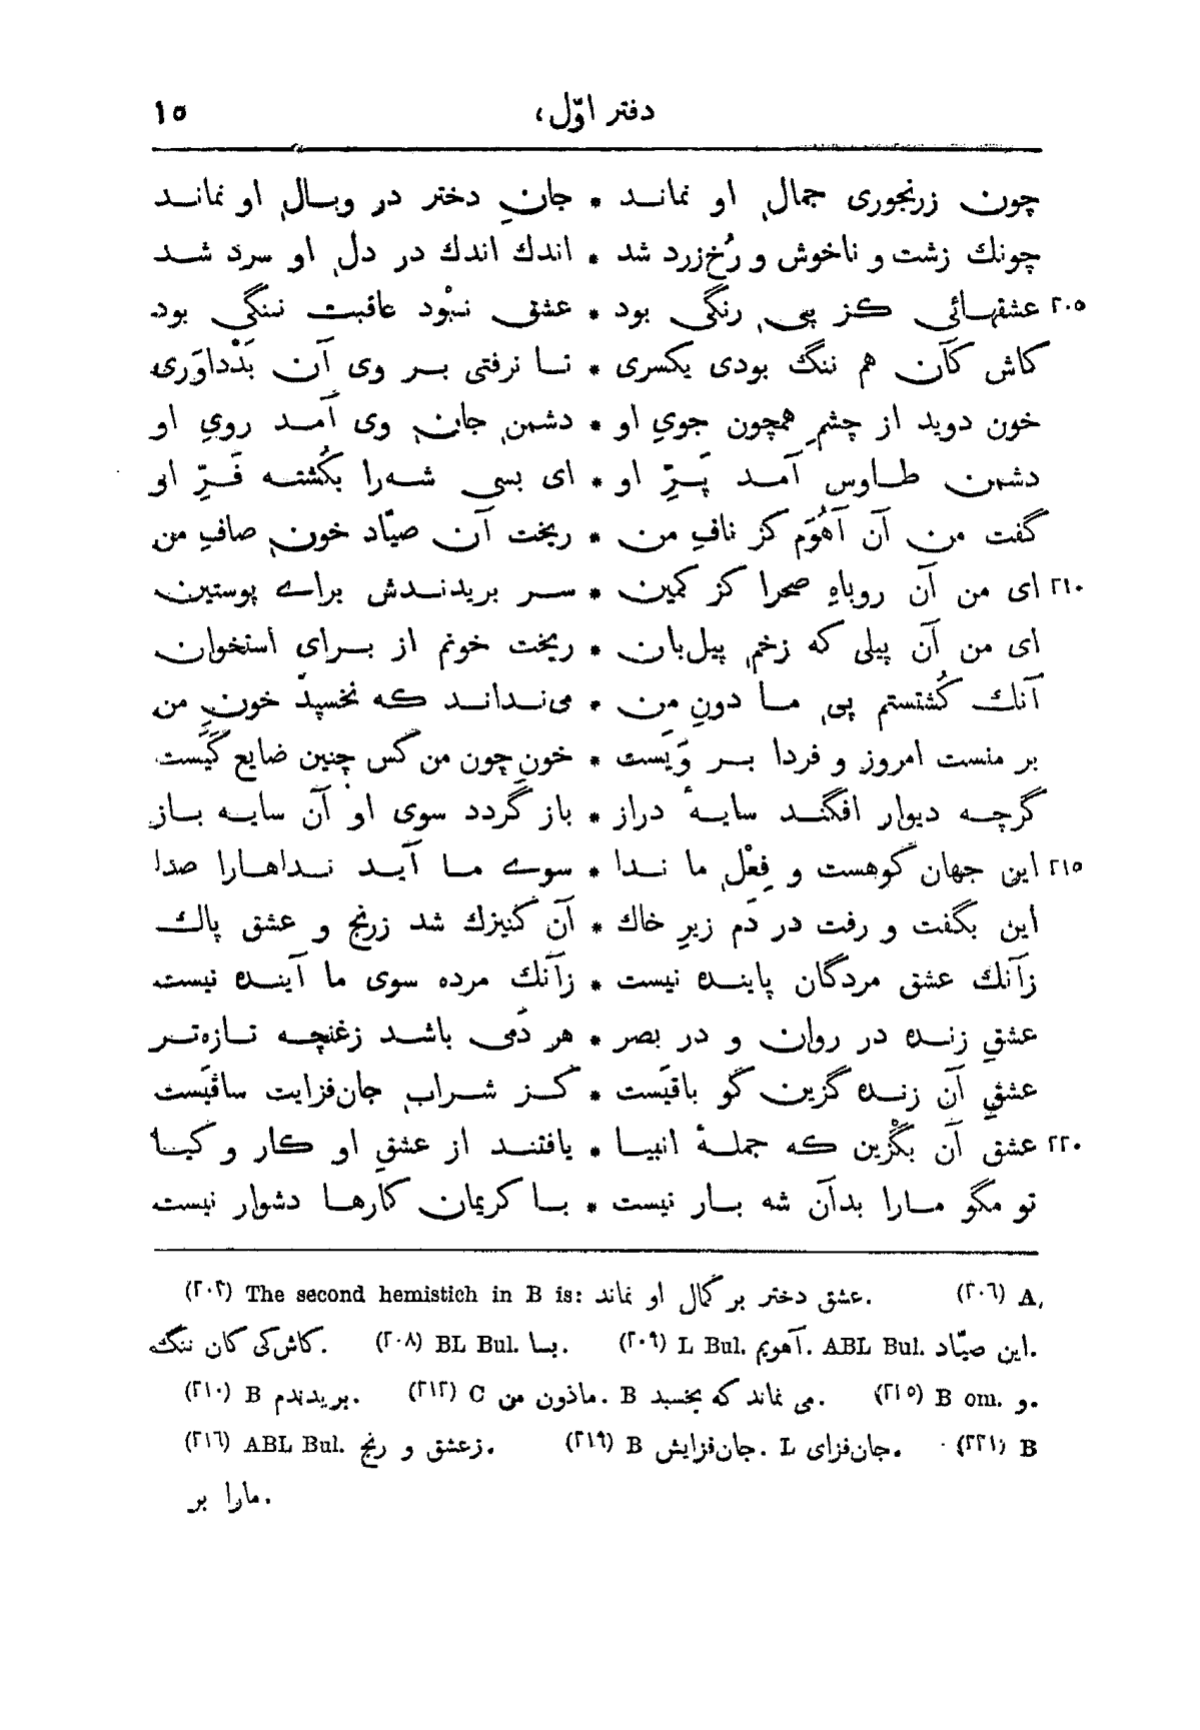 دفتر اوّل، ١٥
چون زرنجوری جمالِ او نماند * جانِ دختر در وبالِ او نماند
چونك زشت و ناخوش و رُخ‌زرد شد * اندك اندك در دلِ او سرد شد
٢٠٥ عشقهائی کز پیِ رنگی بود * عشق نبْود عاقبت ننگی بود
کاش کآن هم ننگ بودی یکسری * تا نرفتی بر وی آن بَدْداوَری
خون دوید از چشمِ همچون جویِ او * دشمنِ جانِ وی آمد رویِ او
دشمنِ طاوس آمد پَرِّ او * ای بسی شه‌را بکُشته فَرِّ او
گفت من آن آهُوَم کز نافِ من * ریخت آن صیّاد خونِ صافِ من
٢١٠ ای من آن روباهِ صحرا کز کمین * سر بریدندش برای پوستین
ای من آن پیلی که زخمِ پیل‌بان * ریخت خونم از برای استخوان
آنك کُشتستم پیِ ما دونِ من * می‌نداند که نخسپد خونِ من
بر منست امروز و فردا بر وَیست * خونِ چون من کَس چنین ضایع کَیَست
گرچه دیوار افگند سایهٔ دراز * باز گردد سوی او آن سایه باز
٢١٥ این جهان کوهست و فِعْلِ ما ندا * سوی ما آید نداهارا صدا
این بگفت و رفت در دَم زیرِ خاك * آن کنیزك شد زرنج و عشق پاك
زآنك عشق مردگان پاینده نیست * زآنك مرده سوی ما آینده نیست
عشقِ زنده در روان و در بصر * هر دَمی باشد زغنچه تازه‌تر
عشقِ آن زنده گزین کو باقیَست * کز شرابِ جان‌فزایت ساقیَست
٢٢٠ عشق آن بگْزین که جملهٔ انبیا * یافتند از عشقِ او کار و کیا
تو مگو مارا بدآن شه بار نیست * با کریمان کارها دشوار نیست
(٢٠٣) The second hemistich in B is: عشق دختر بر کمال او نماند. (٢٠٦) A,
کاش‌کی کان ننگ. (٢٠٨) BL Bul. بسا. (٢٠٩) L Bul. آهویم. ABL Bul. این صیّاد.
(٢١٠) B بریدندم. (٢١٢) C ماذون من. B می نماند که بخسبد. (٢١٥) B om. و.
(٢١٦) ABL Bul. زعشق و رنج. (٢١٩) B جان‌فزایش. L جان‌فزای. (٢٢١) B
مارا بر.